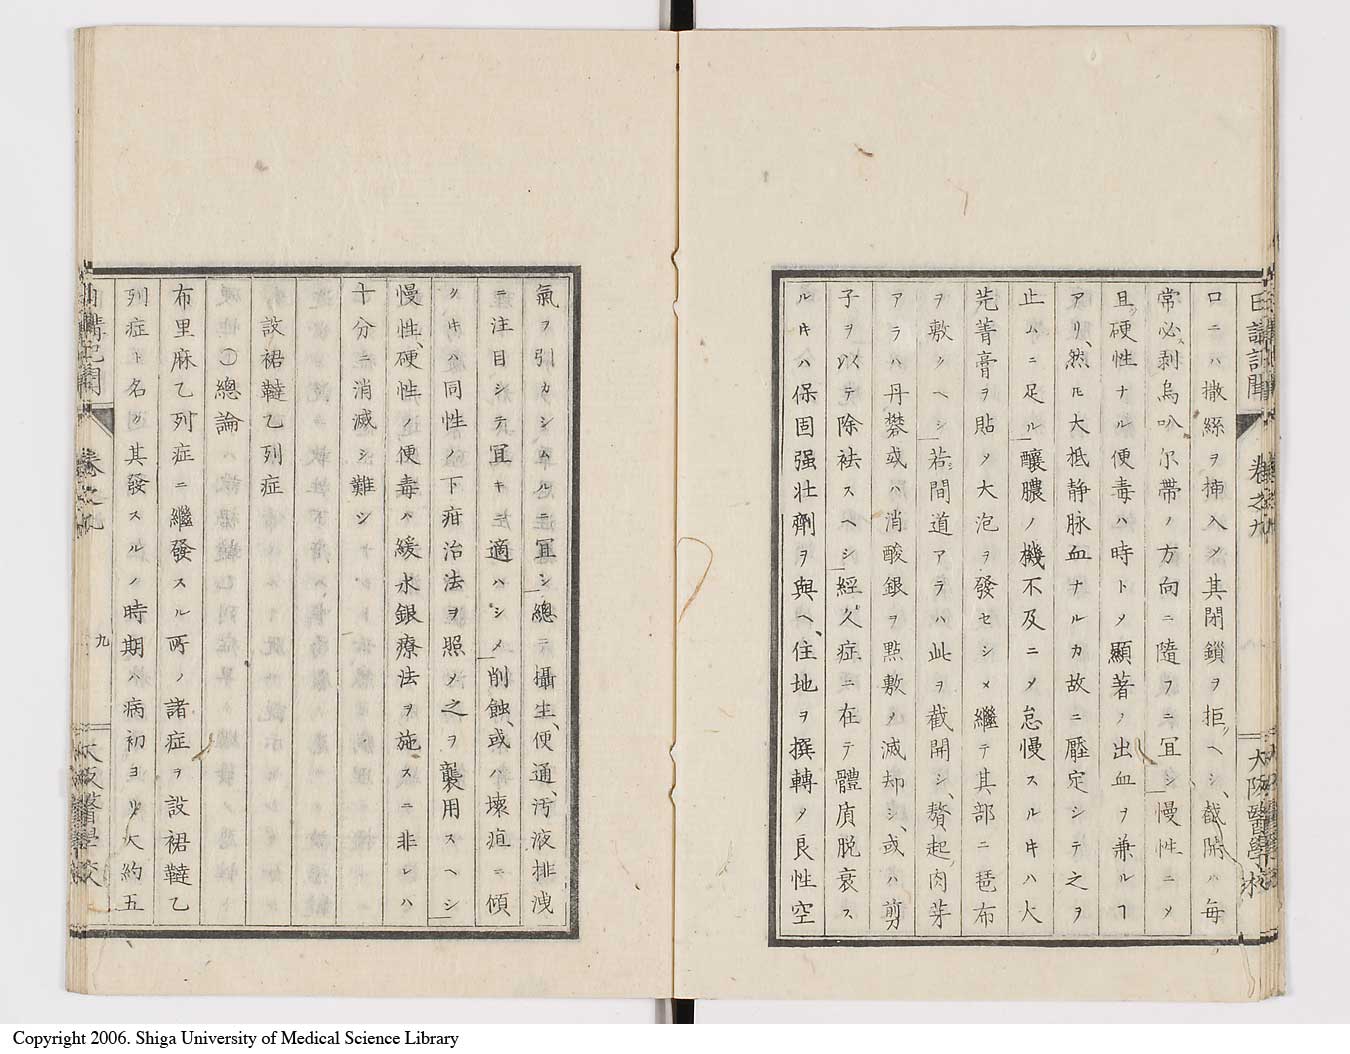 口ニハ撒絲ヲ挿入メ其閉鎖ヲ拒ヘシ、截開ハ毎
常必ス剥烏叭尓帯ノ方向ニ隨フニ冝シ慢性ニメ
且硬性ナル便毒ハ時トメ顯著ノ出血ヲ兼ルヿ
アリ、然ルモ大抵静脉血ナルカ故ニ壓定シテ之ヲ
止ムニ足ル釀膿ノ機不及ニメ怠慢スルキハ大
芫菁膏ヲ貼メ大泡ヲ發セシメ繼テ其部ニ琶布
ヲ敷クヘシ若間道アラハ此ヲ截開シ、贅起肉芽
アラハ丹礬或ハ消酸銀ヲ點敷メ滅却シ、或ハ剪
子ヲ以テ除袪スヘシ經久症ニ在テ體質脱衰ス
ルキハ保固强壮劑ヲ與ヘ、住地ヲ撰轉メ良性空
日講記聞 卷之九 大阪醫學校
氣ヲ引カシムルニ冝シ總テ攝生、便通、汚液排洩
ニ注目シテ冝キニ適ハシメ削蝕、或ハ壊疽ニ傾
クキハ同性ノ下疳治法ヲ照メ之ヲ襲用スヘシ
慢性、硬性ノ便毒ハ緩水銀療法ヲ施スニ非レハ
十分ニ消滅シ難シ
設裙韃乙列症
總論
布里麻乙列症ニ繼發スル所ノ諸症ヲ設裙韃乙
列症ト名ク其發スルノ時期ハ病初ヨリ大約五
日講記聞 卷之九 九 大阪醫學校
Copyright 2006. Shiga University of Medical Science Library